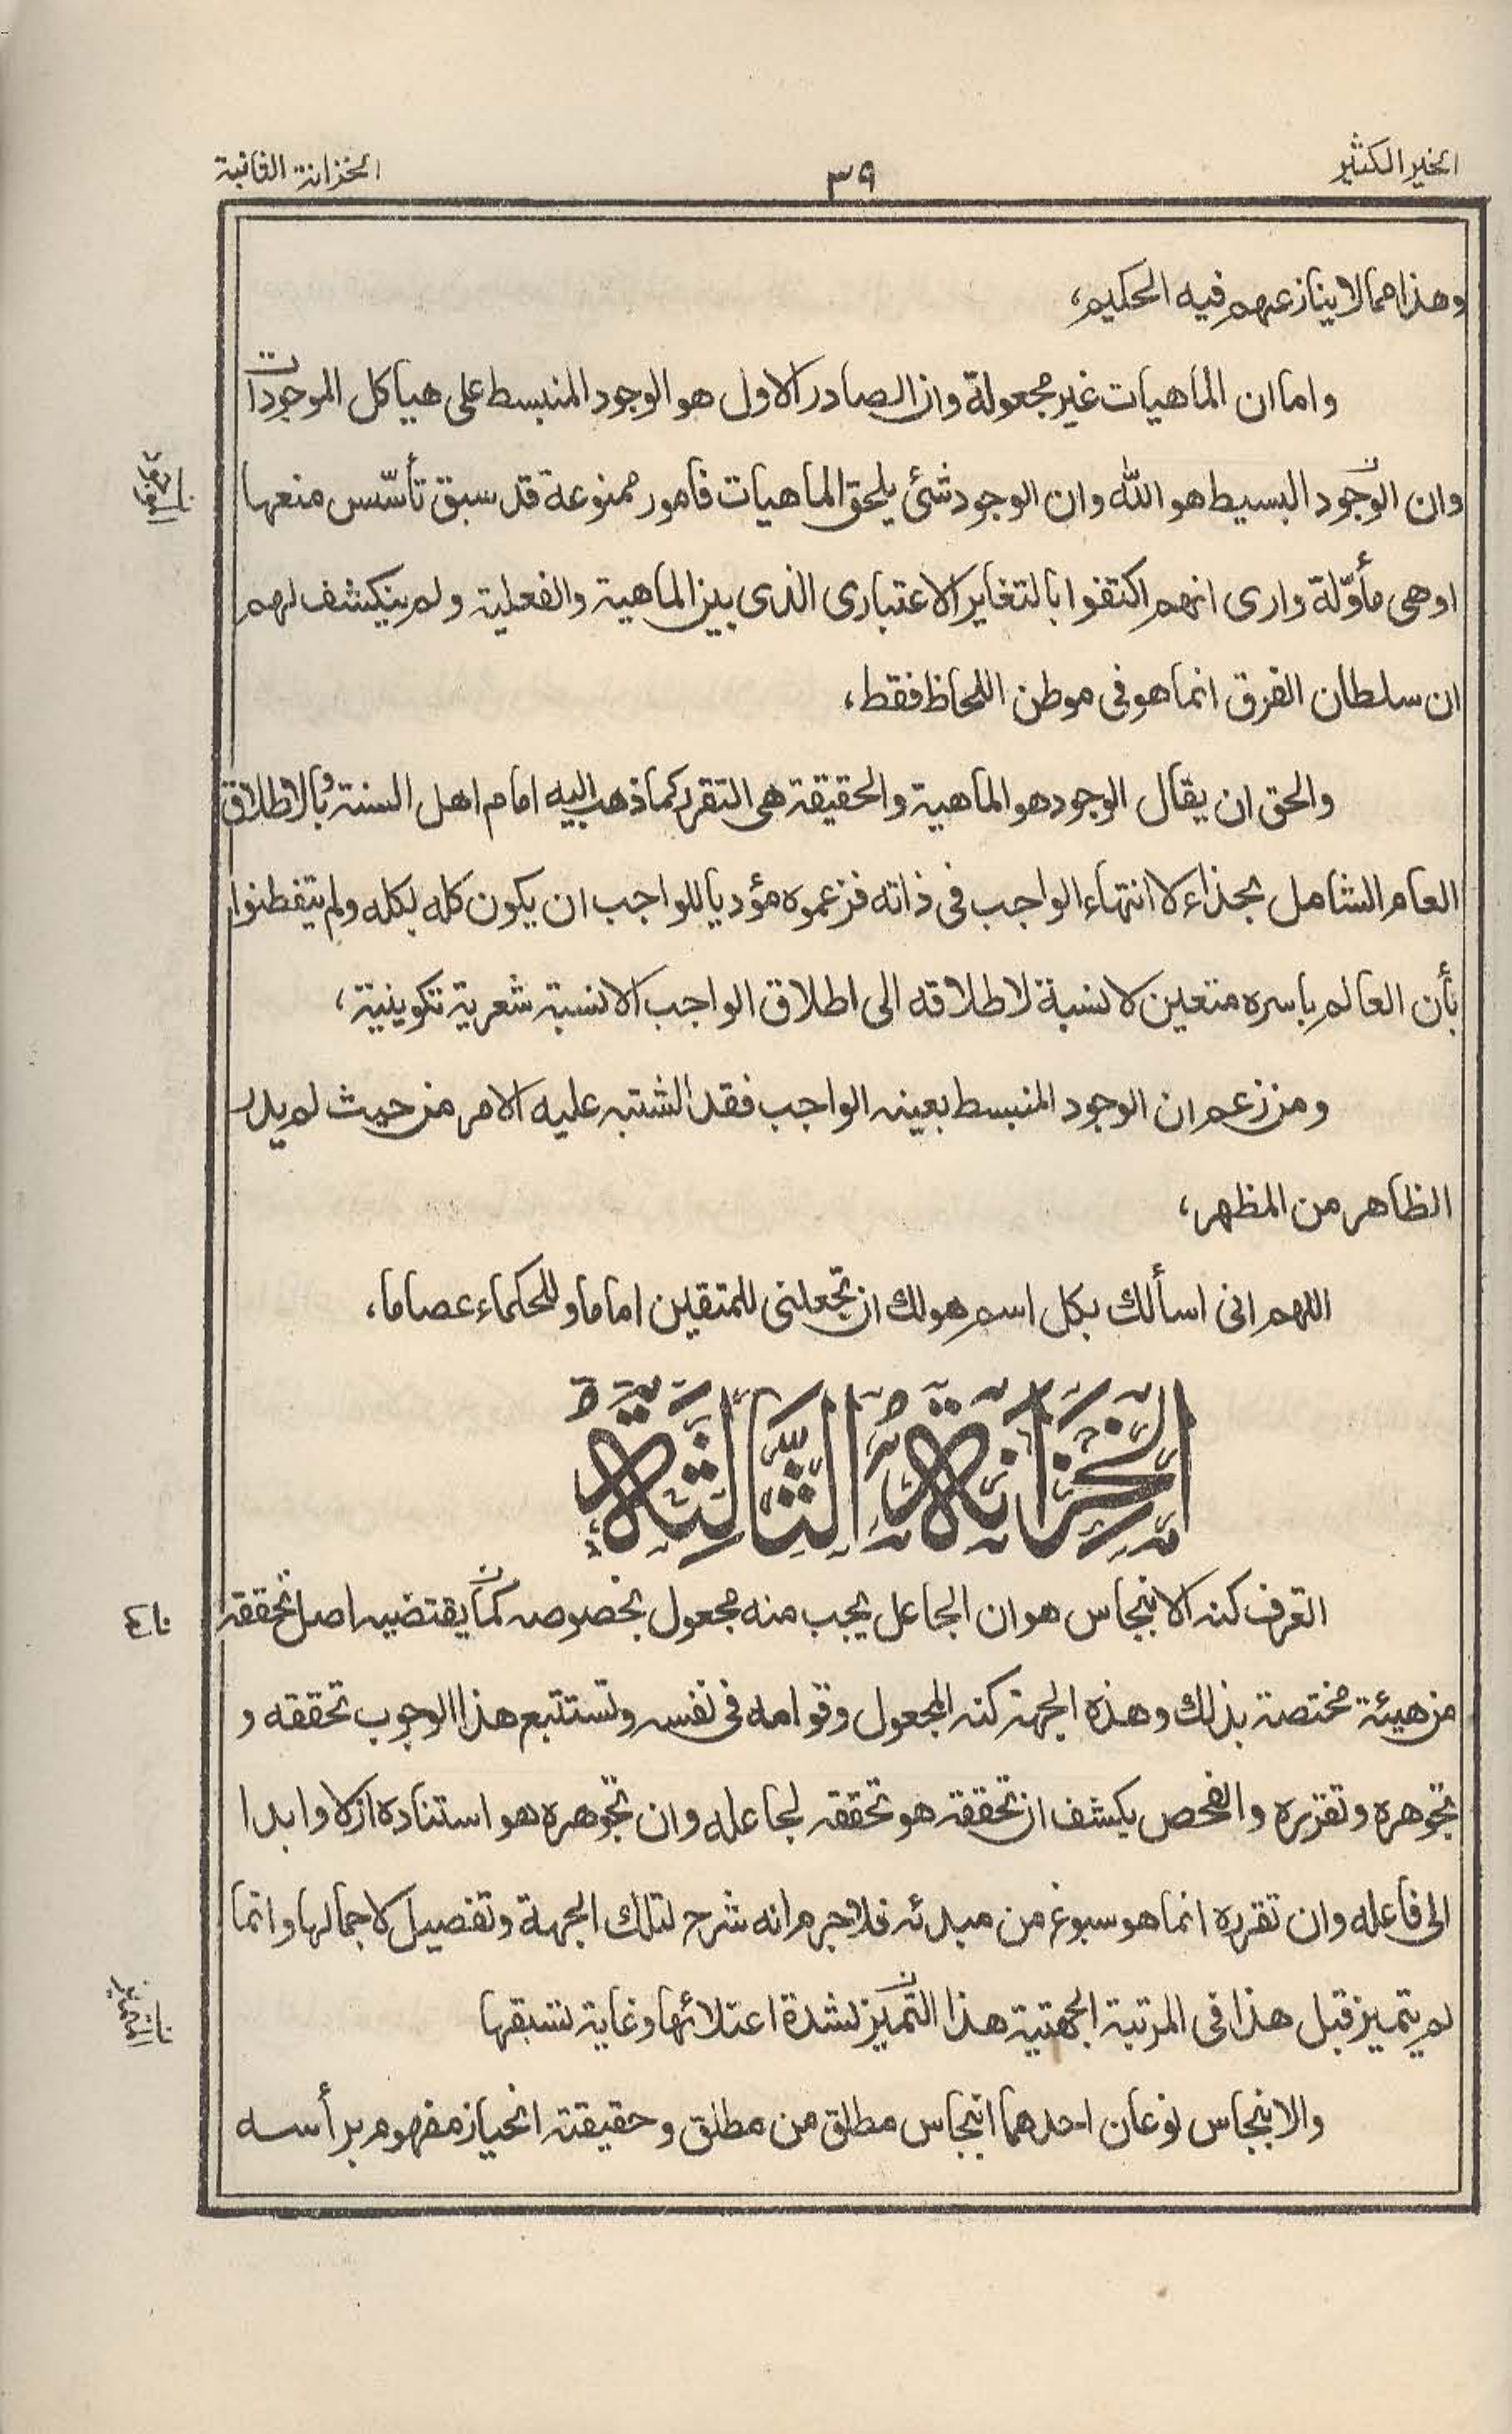 الخير الكثير
٣٩
الخزانة الثانية
وهذا مما لا ينازعهم فيه الحكيم،
واما ان الماهيات غير مجعولة وان الصادر الاول هو الوجود المنبسط على هياكل الموجودات
وان الوجود البسيط هو الله وان الوجود شئ يلحق الماهيات فامور ممنوعة قد سبق تأسّس منعها
اوهى مأوّلة وارى انهم اكتفوا بالتغاير الاعتبارى الذى بين الماهية والفعلية ولم ينكشف لهم
ان سلطان الفرق انما هو فى موطن اللحاظ فقط،
والحق ان يقال الوجود هو الماهية والحقيقة هى التقرر كما ذهب اليه امام اهل السنة وبالاطلاق
العام الشامل بحذاء لا انتهاء الواجب فى ذاته فزعموه مؤديا للواجب ان يكون كله بكله ولم يتفطنوا
بأن العالم باسره متعين لا نسبة لاطلاقه الى اطلاق الواجب الا نسبة شعرية تكوينية،
ومن زعم ان الوجود المنبسط بعينه الواجب فقد اشتبه عليه الامر من حيث لم يدر
الظاهر من المظهر،
اللهم انى اسألك بكل اسم هولك ان تجعلنى للمتقين اماما وللحكماء عصاما،
الْخِزَانَةُ الثَّالِثَةُ
القرف كنه الانبجاس هو ان الجاعل يجب منه مجعول بخصوصه كما يقتضيه اصل تحققه
ن
من هيئة مختصة بذلك وهذه الجهة كنه المجعول وقوامه فى نفسه وتستتبع هذا الوجوب تحققه و
تجوهره وتقرره والفحص يكشف ان تحققه هو تحققه لجاعله وان تجوهره هو استناده ازلا وابدا
الى فاعله وان تقرره انما هو سبوغ من مبدئه فلا جرم انه شرح لتلك الجهة وتفصيل لاجمالها وانما
لم يتميز قبل هذا فى المرتبة الجهتية هذا التميز لشدة اعتلائها وغاية لتسبقها
والانبجاس نوعان احدهما انبجاس مطلق من مطلق وحقيقته انحياز مفهوم برأسه